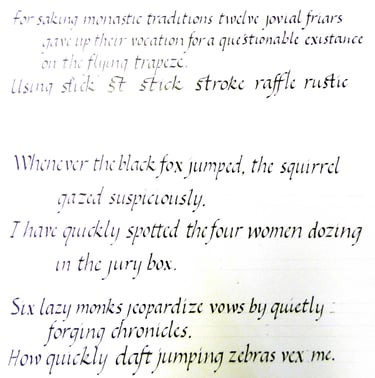 for saking monastic traditions twelve jovial friars
gave up their vocation for a questionable existance
on the flying trapeze.
Using slick st stick stroke raffle rustic
Whenever the black fox jumped, the squirrel
gazed suspiciously.
I have quickly spotted the four women dozing
in the jury box.
Six lazy monks jeopardize vows by quietly
forging chronicles.
How quickly daft jumping zebras vex me.